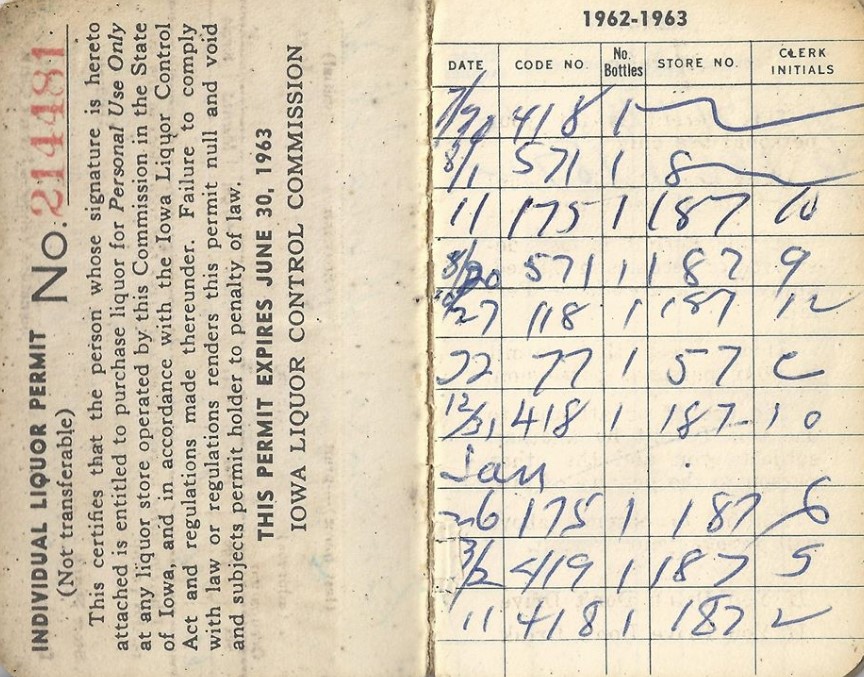 INDIVIDUAL LIQUOR PERMIT No. 214481
(Not transferable)
This certifies that the person whose signature is hereto
attached is entitled to purchase liquor for Personal Use Only
at any liquor store operated by this Commission in the State
of Iowa, and in accordance with the Iowa Liquor Control
Act and regulations made thereunder. Failure to comply
with law or regulations renders this permit null and void
and subjects permit holder to penalty of law.
THIS PERMIT EXPIRES JUNE 30, 1963
IOWA LIQUOR CONTROL COMMISSION
1962-1963
DATE CODE NO. No. Bottles STORE NO. CLERK INITIALS
418 1
8/1 571 1 8
11 175 1 187 10
8/20 571 1 187 9
27 118 1 187 12
22 77 1 57 C
12/31 418 1 187-10
Jan
26 175 1 187 8
3/2 419 1 187 5
11 418 1 187 2